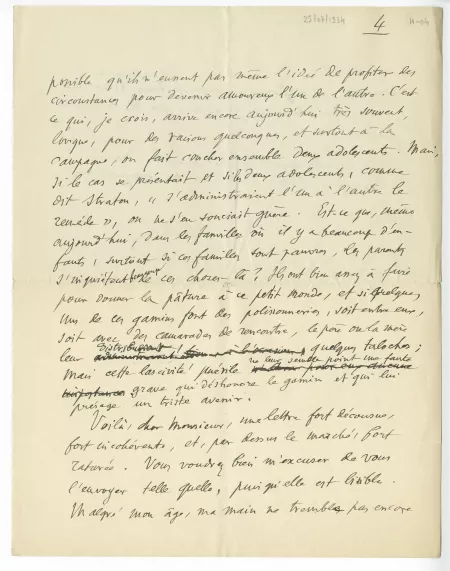 25/07/1924
4
possible qu'ils n'eussent pas même l'idée de profiter des
circonstances pour devenir amoureux l'un de l'autre. C'est
ce qui, je crois, arrive encore aujourd'hui très souvent,
lorsque, pour des raisons quelconques, et surtout à la
campagne, on fait coucher ensemble deux adolescents. Mais,
si le cas se présentait et si les deux adolescents, comme
dit Straton, « s'administraient l'un à l'autre le
remède », on ne s'en souciait guère. Est-ce que, même
aujourd'hui, dans les familles où il y a beaucoup d'en-
fants, surtout si ces familles sont pauvres, les parents
s'inquiètent beaucoup de ces choses-là ? Ils ont bien assez à faire
pour donner la pâture à ce petit monde, et si quelques
uns de ces gamins font des polissonneries, soit entre eux,
soit avec des camarades de rencontre, le père ou la mère
leur distribuent quelques taloches ;
mais cette lascivité puérile ne leur semble point une faute
grave qui déshonore le gamin et qui lui
présage un triste avenir.
Voilà, cher Monsieur, une lettre fort décousue,
fort incohérente, et, par dessus le marché, fort
raturée. Vous voudrez bien m'excuser de vous
l'envoyer telle quelle, puisqu'elle est lisible.
Malgré mon âge, ma main ne tremble pas encore